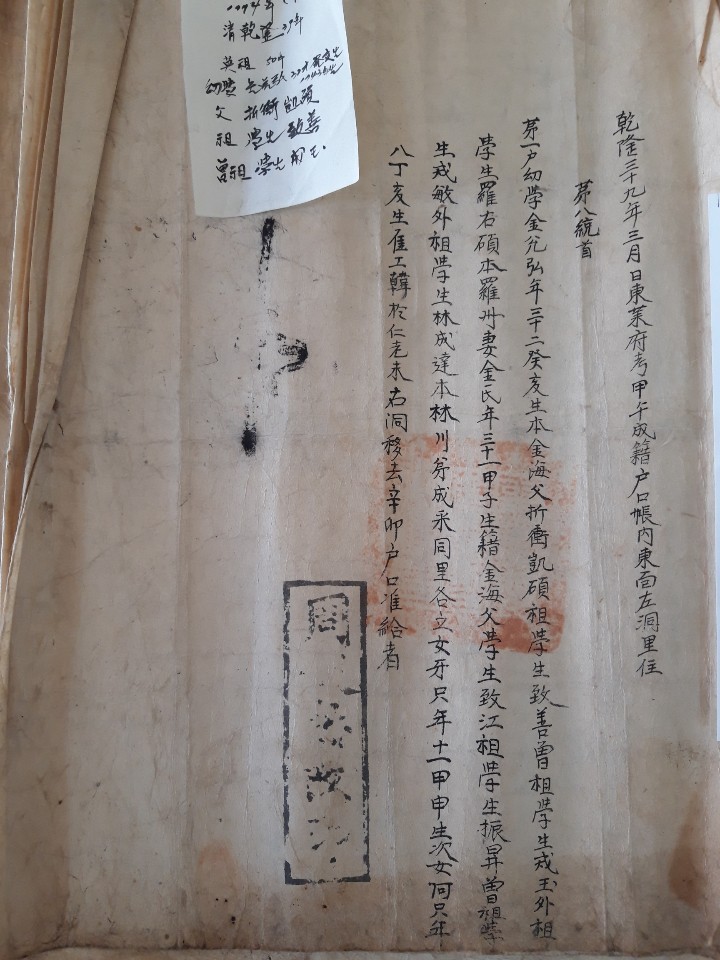 乾隆三十九年三月 日東萊府考甲午成籍户口帳内東面左洞里住
第八統首
第一户幼學金兌弘年三十二癸亥生本金海父折衝凱碩祖學生致善曾祖學生戒玉外祖
學生羅右碩本羅州妻金氏年三十一甲子生籍金海父學生致江祖學生振昇曾祖學
生戒敏外祖學生林成達本林川弟成采同里各立女牙只年十一甲申生次女何只年
八丁亥生雇工韓於仁老未右洞移去辛卯户口准給者
周 改
清乾隆 39年
英祖 50年
父 折衝 凱碩
祖 學生 致善
曾祖 學生